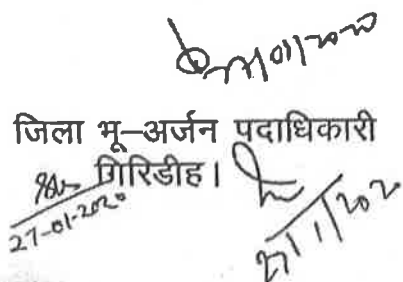 27/01/2020
जिला भू-अर्जन पदाधिकारी
गिरिडीह।
27-01-2020
27/1/202